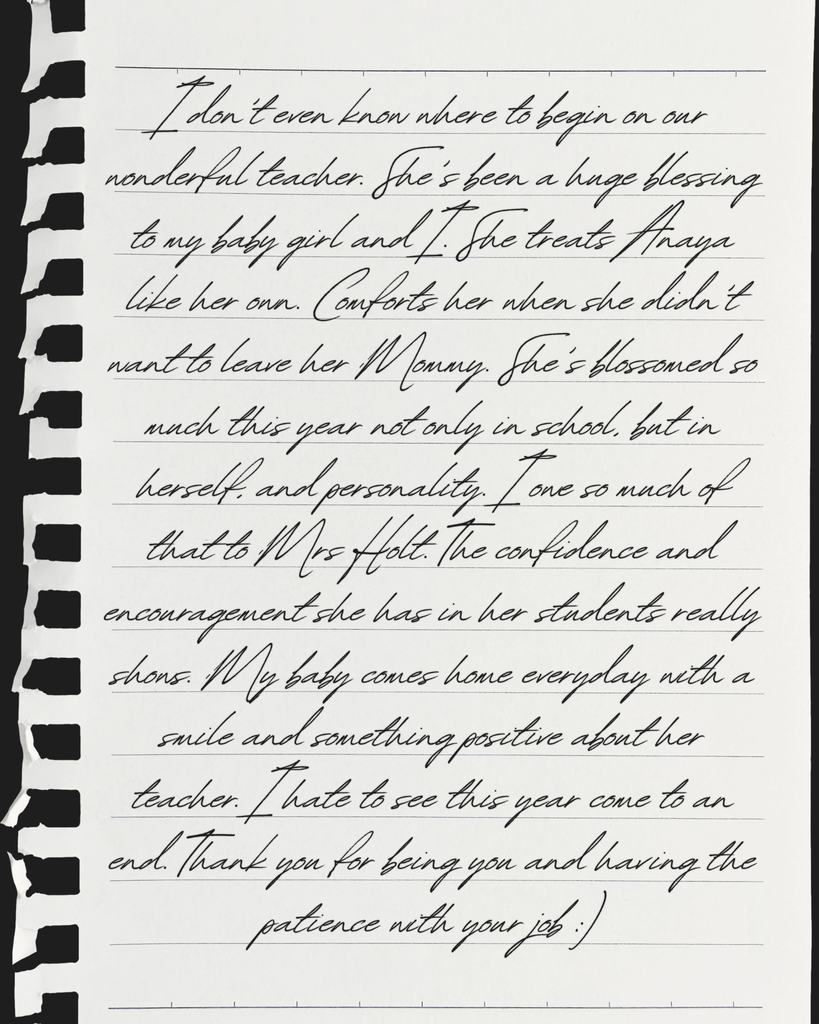 I don't even know where to begin on our
wonderful teacher. She's been a huge blessing
to my baby girl and I. She treats Anaya
like her own. Comforts her when she didn't
want to leave her Mommy. She's blossomed so
much this year not only in school, but in
herself, and personality. I owe so much of
that to Mrs Holt. The confidence and
encouragement she has in her students really
shows. My baby comes home everyday with a
smile and something positive about her
teacher. I hate to see this year come to an
end. Thank you for being you and having the
patience with your job :)